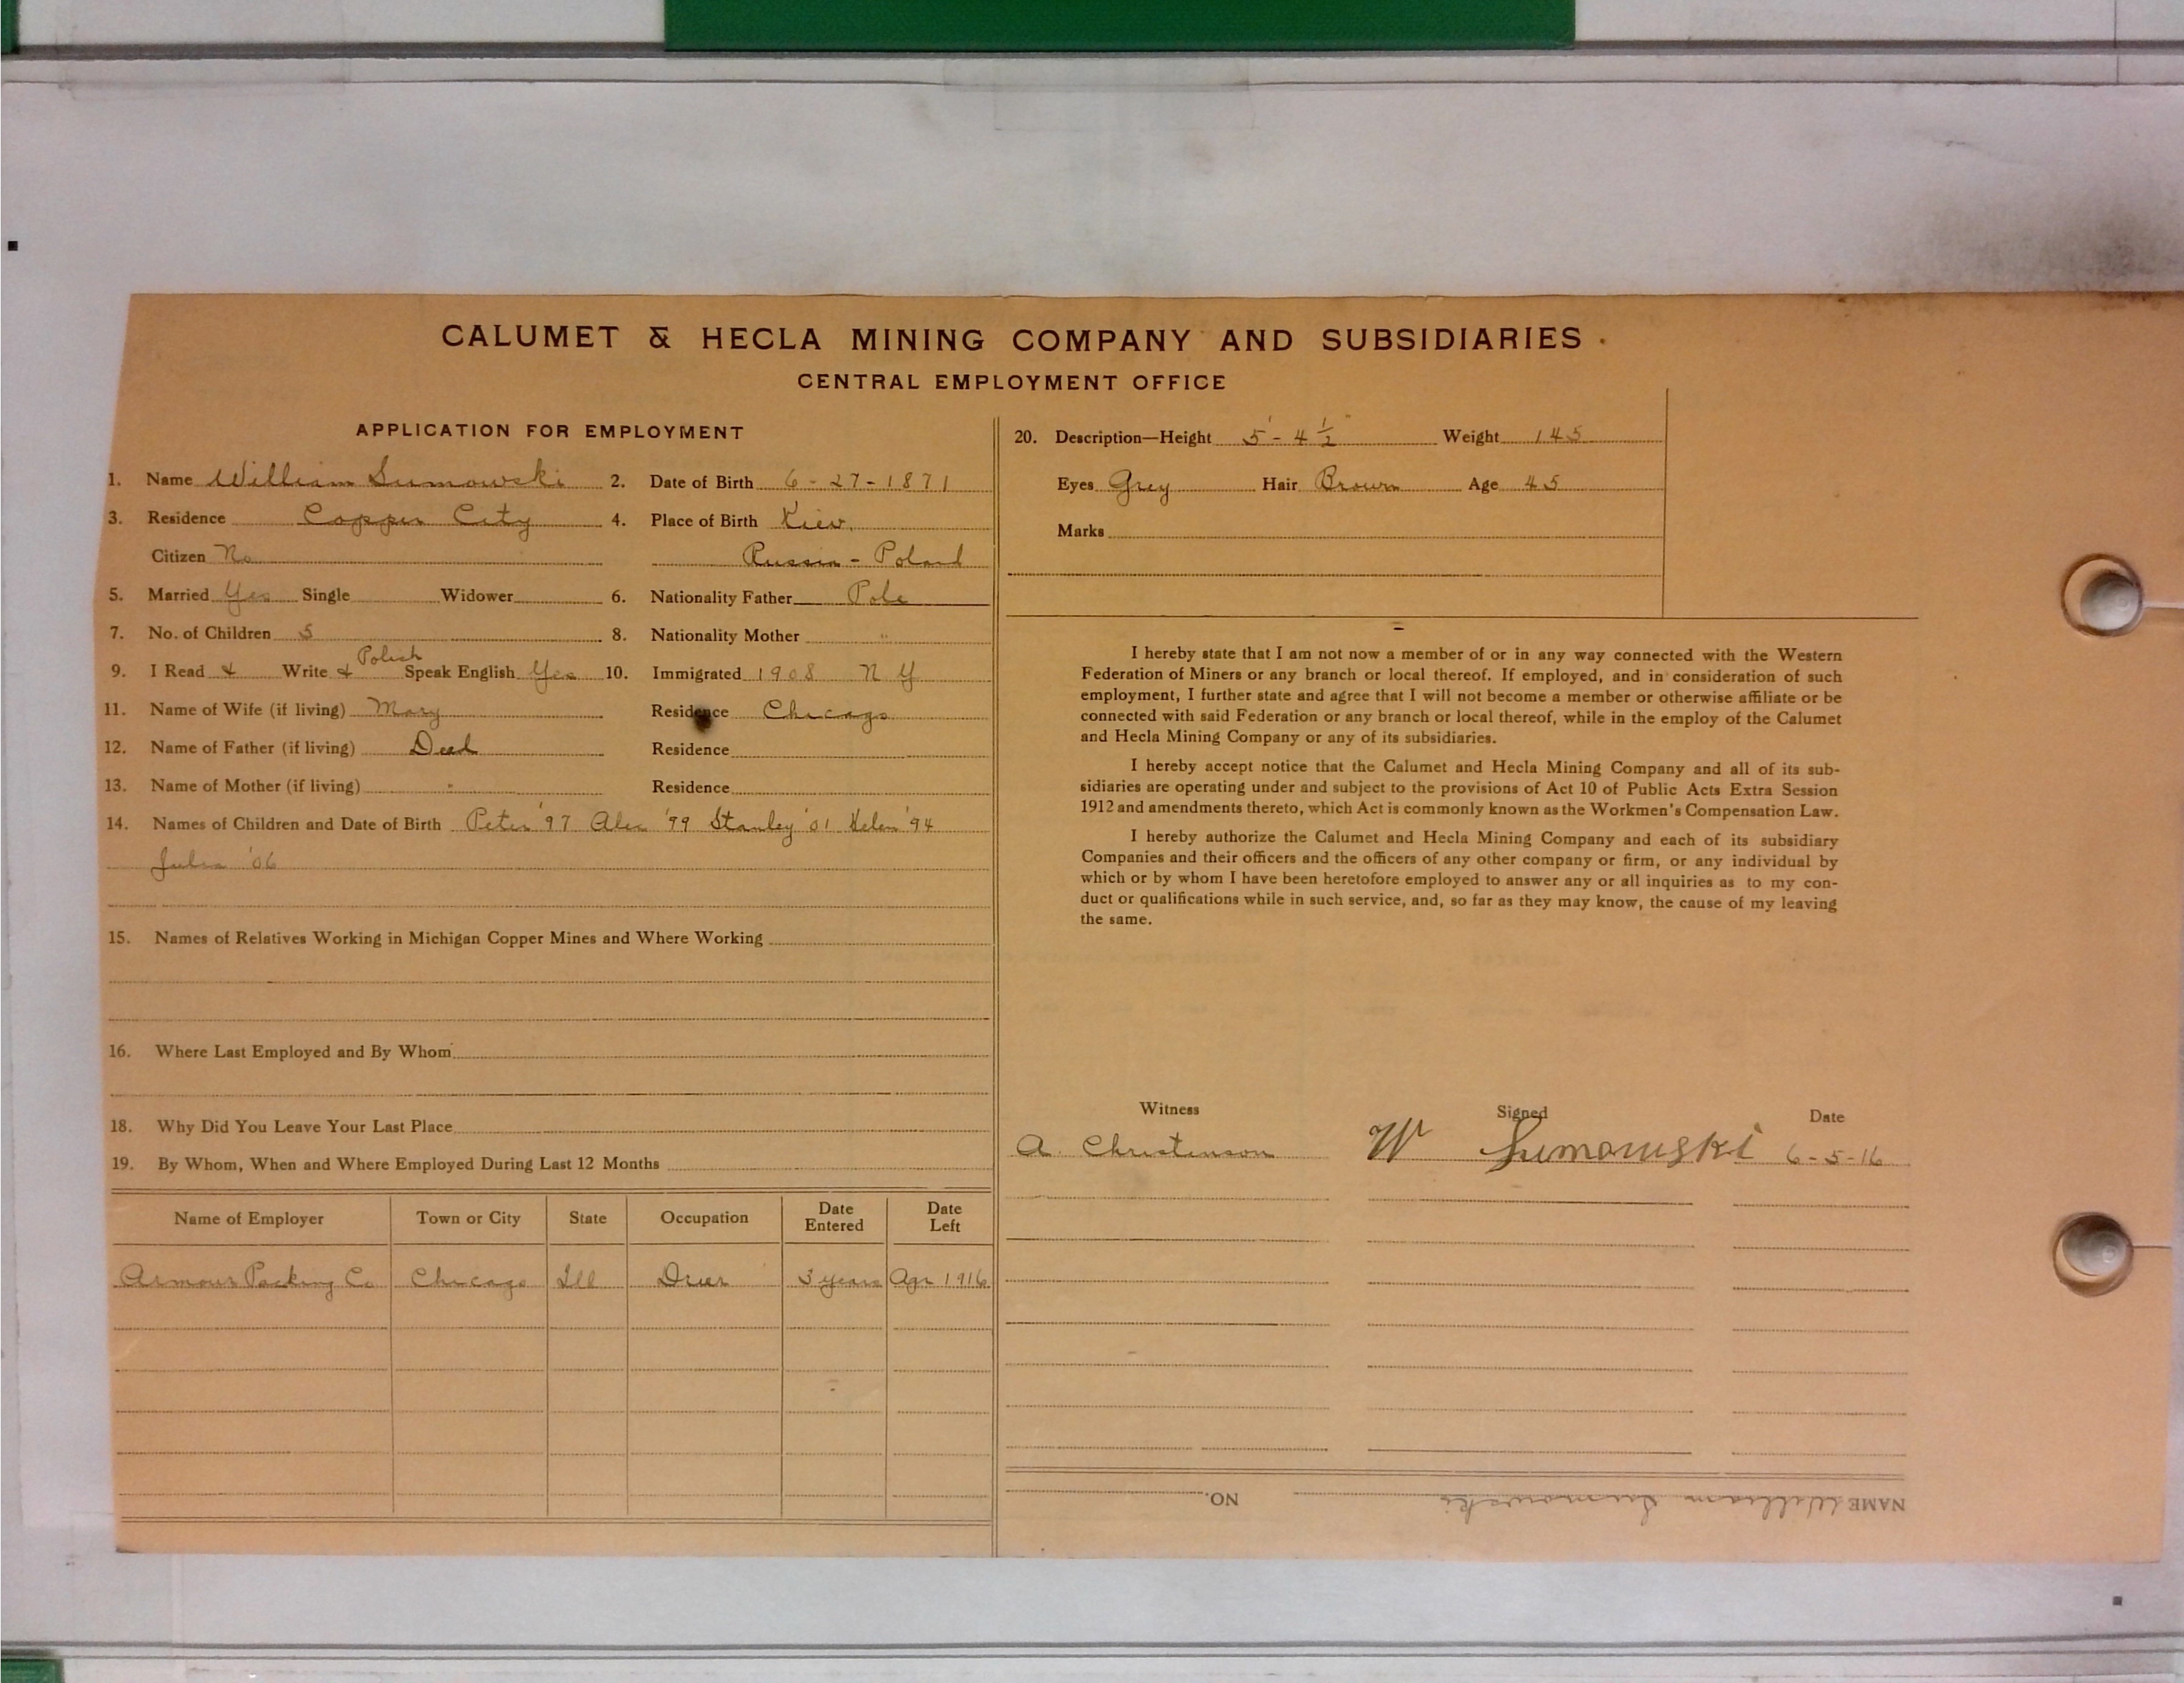 CALUMET & HECLA MINING COMPANY AND SUBSIDIARIES
CENTRAL EMPLOYMENT OFFICE
APPLICATION FOR EMPLOYMENT
1. Name William Sumowski 2. Date of Birth 6-27-1871
3. Residence Copper City 4. Place of Birth Kiev,
Citizen No Russia - Poland
5. Married Yes Single Widower 6. Nationality Father Pole
7. No. of Children 5 8. Nationality Mother "
Polish
9. I Read & Write & Speak English Yes 10. Immigrated 1908 N Y
11. Name of Wife (if living) Mary Residence Chicago
12. Name of Father (if living) Dead Residence
13. Name of Mother (if living) " Residence
14. Names of Children and Date of Birth Peter '97 Alex '99 Stanley '01 Helen '94
Julia '06
15. Names of Relatives Working in Michigan Copper Mines and Where Working
16. Where Last Employed and By Whom
18. Why Did You Leave Your Last Place
19. By Whom, When and Where Employed During Last 12 Months
Name of Employer Town or City State Occupation Date Entered Date Left
Armour Packing Co Chicago Ill 3 years Apr 1916
20. Description—Height 5'-4½" Weight 145
Eyes Grey Hair Brown Age 45
Marks
I hereby state that I am not now a member of or in any way connected with the Western
Federation of Miners or any branch or local thereof. If employed, and in consideration of such
employment, I further state and agree that I will not become a member or otherwise affiliate or be
connected with said Federation or any branch or local thereof, while in the employ of the Calumet
and Hecla Mining Company or any of its subsidiaries.
I hereby accept notice that the Calumet and Hecla Mining Company and all of its sub-
sidiaries are operating under and subject to the provisions of Act 10 of Public Acts Extra Session
1912 and amendments thereto, which Act is commonly known as the Workmen's Compensation Law.
I hereby authorize the Calumet and Hecla Mining Company and each of its subsidiary
Companies and their officers and the officers of any other company or firm, or any individual by
which or by whom I have been heretofore employed to answer any or all inquiries as to my con-
duct or qualifications while in such service, and, so far as they may know, the cause of my leaving
the same.
Witness Signed Date
A. Christenson W Sumowski 6-5-16
NAME William Sumowski NO.